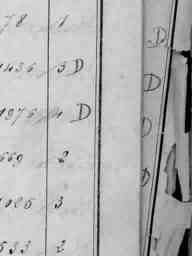 78 1
1436 3 D
1375 4 D
669 2
1026 3
533 2
D
D
D
D